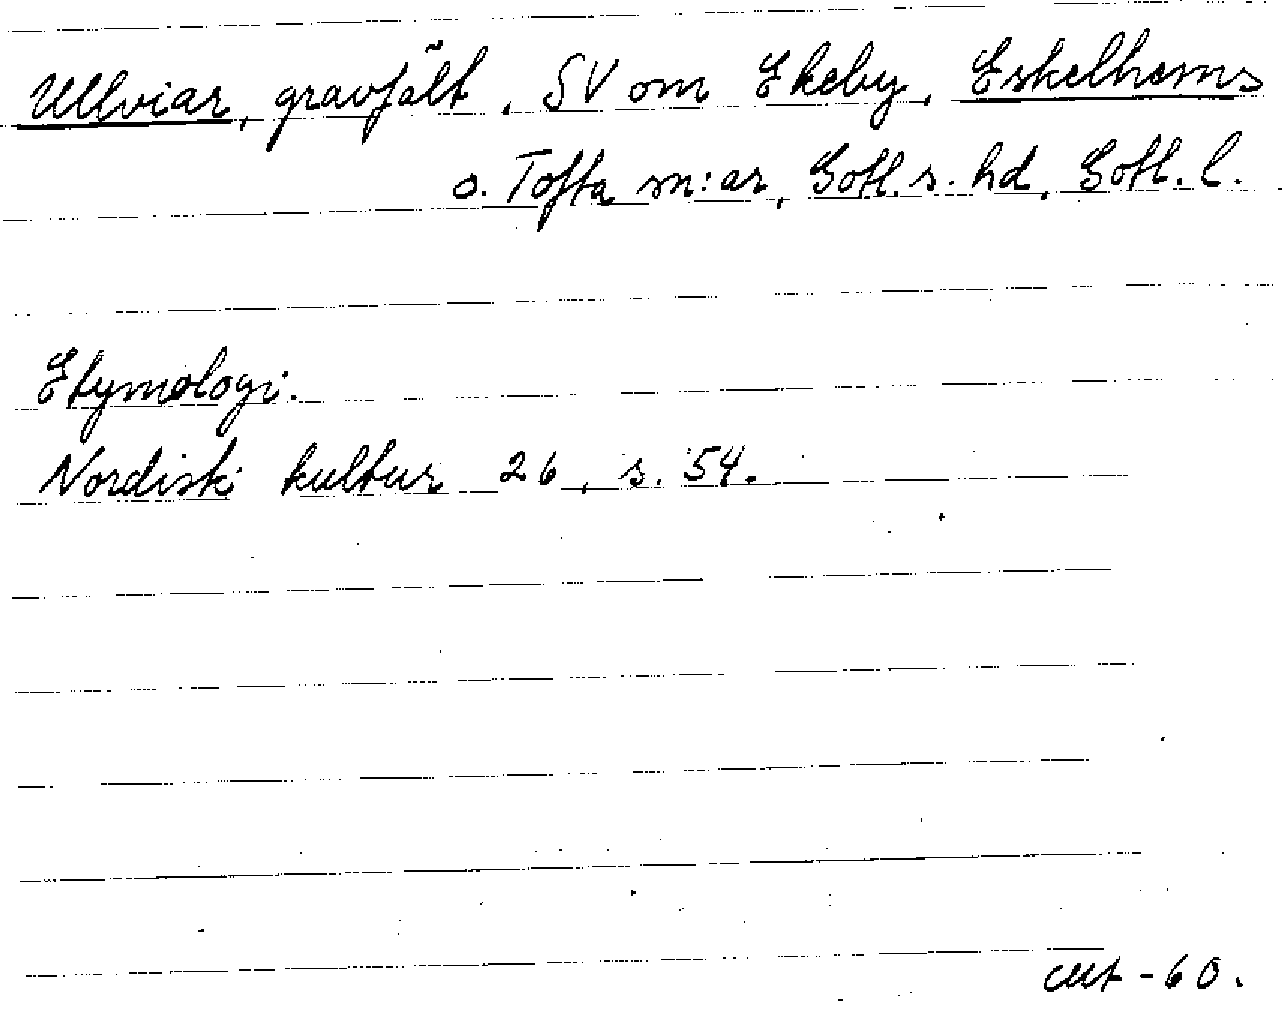 Ullviar, gravfält, SV om Ekeby, Eskelhems
o. Tofta sn:ar, Gotl. s. hd, Gotl. l.
Etymologi.
Nordisk kultur 26, s. 54.
-60.